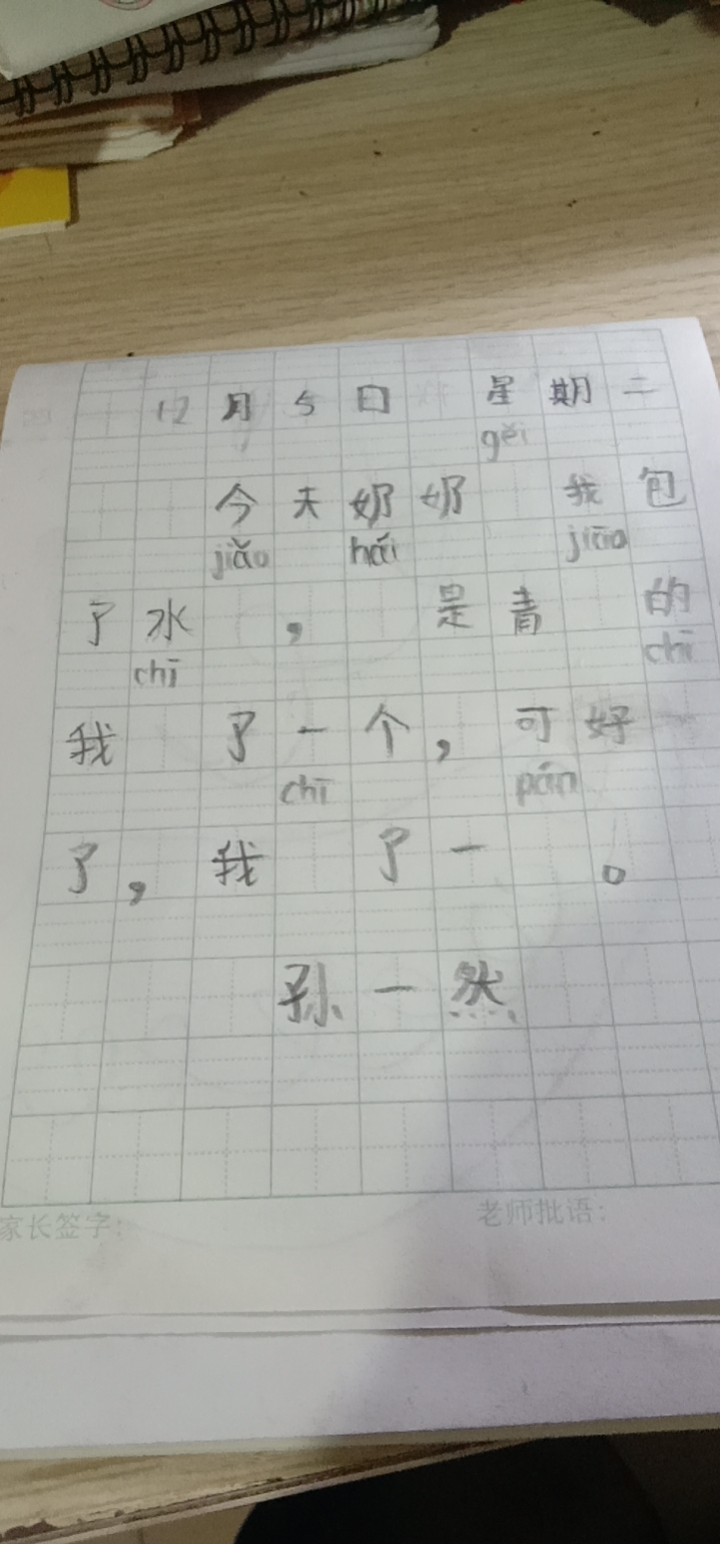 12月5日 星期二
gěi
今天奶奶 我包
jiǎo hái jiāo
了水 , 是青 的
chī chī
我 了一个,可好
chī pán
了,我 了一 。
孙一然
家长签字: 老师批语: